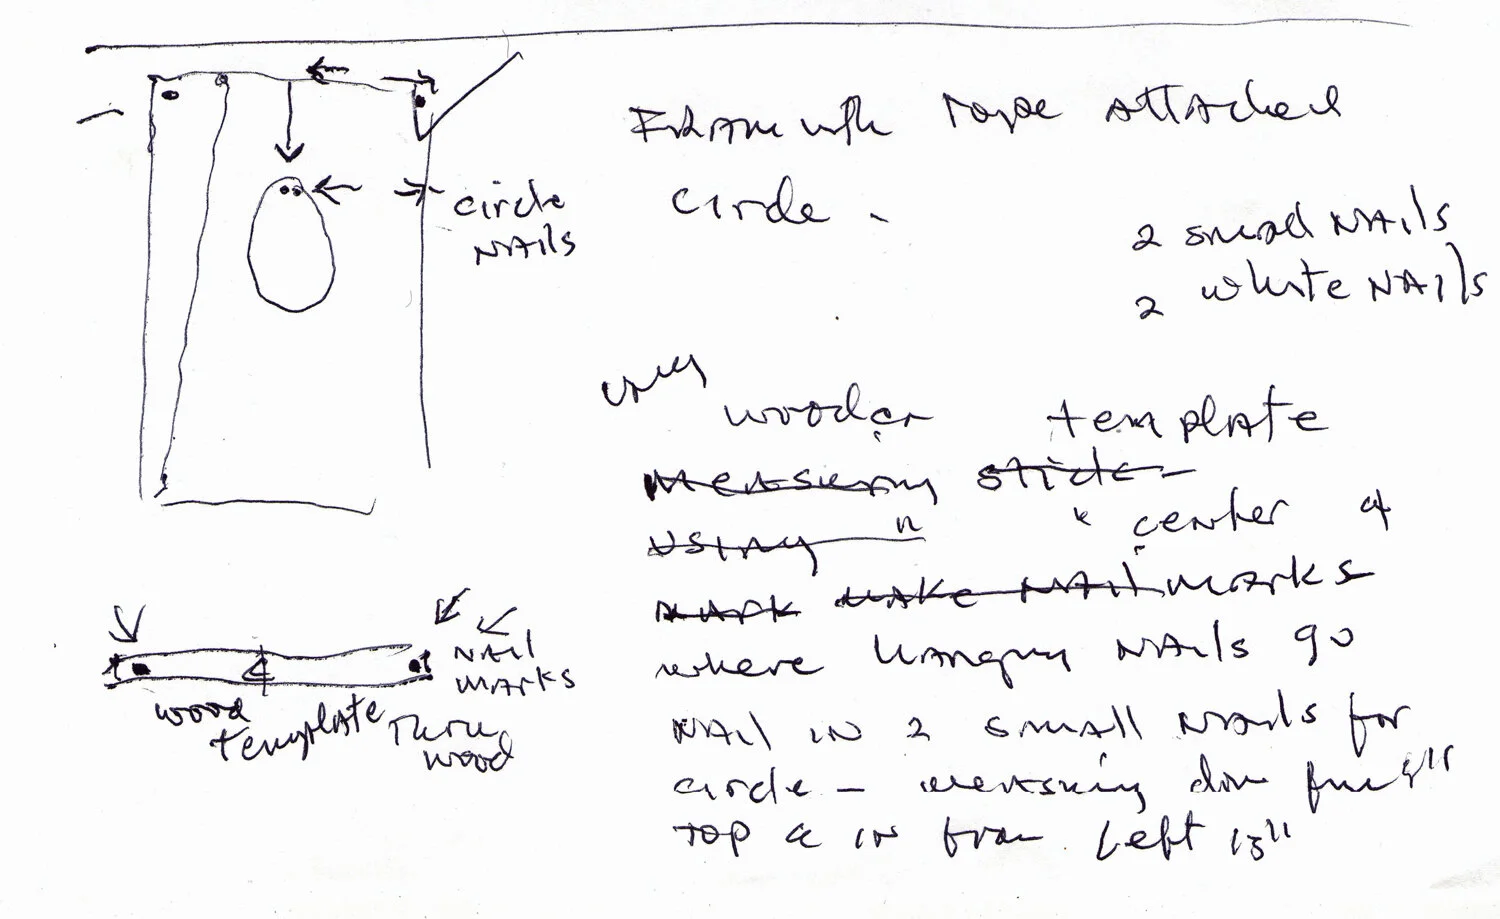 circle
NAils
rope attached
circle -
2 small NAils
2 white NAils
using
wooden template
measuring stick -
using " " center &
mark make nail marks
where hanging NAils go
NAil in 2 small NAils for
circle - measuring down
top & in from Left 15"
NAil
marks
wood
template thru
wood